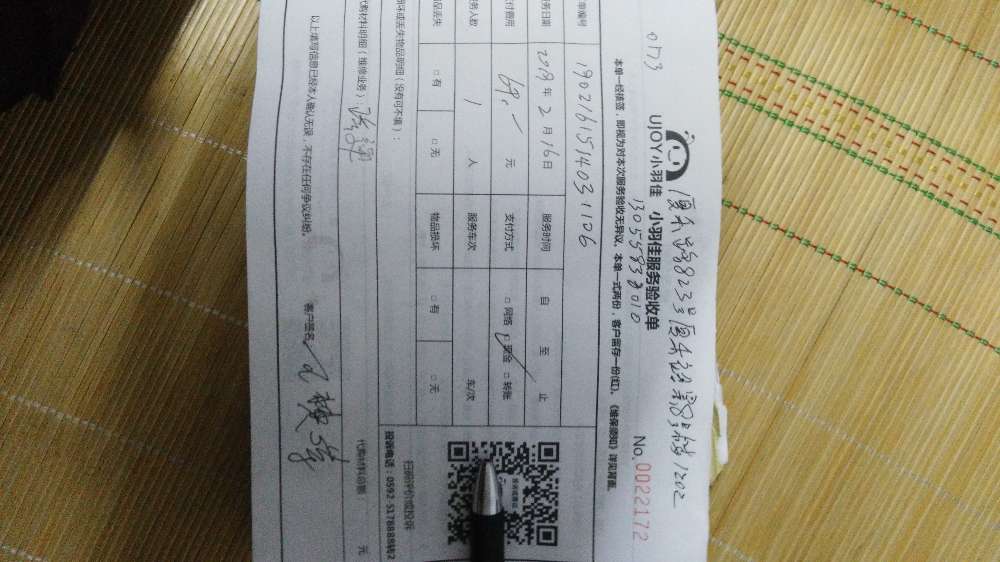 0173
厦禾路823号厦禾裕景3梯1202
UJOY小羽佳 小羽佳服务验收单
13055838010
No. 0022172
本单一经核签，即视为对本次服务验收无异议，本单一式两份，客户需存一份(红)。《维保须知》详见背面。
单编号 1902161514031106
务日期 2019年2月16日 服务时间 自 至 止
付费用 69.一 元 支付方式 □网络 □现金 □转账
务人数 1 人 服务车次 车/次
品丢失 □有 □无 物品损坏 □有 □无
损坏或丢失物品明细（没有可不填）：
扫码评价或投诉
投诉电话：0592 5178888转2
代购材料明细（维修业务）
代购材料总额： 元
以上填写信息已经本人确认无误，不存在任何争议纠纷。
客户签名